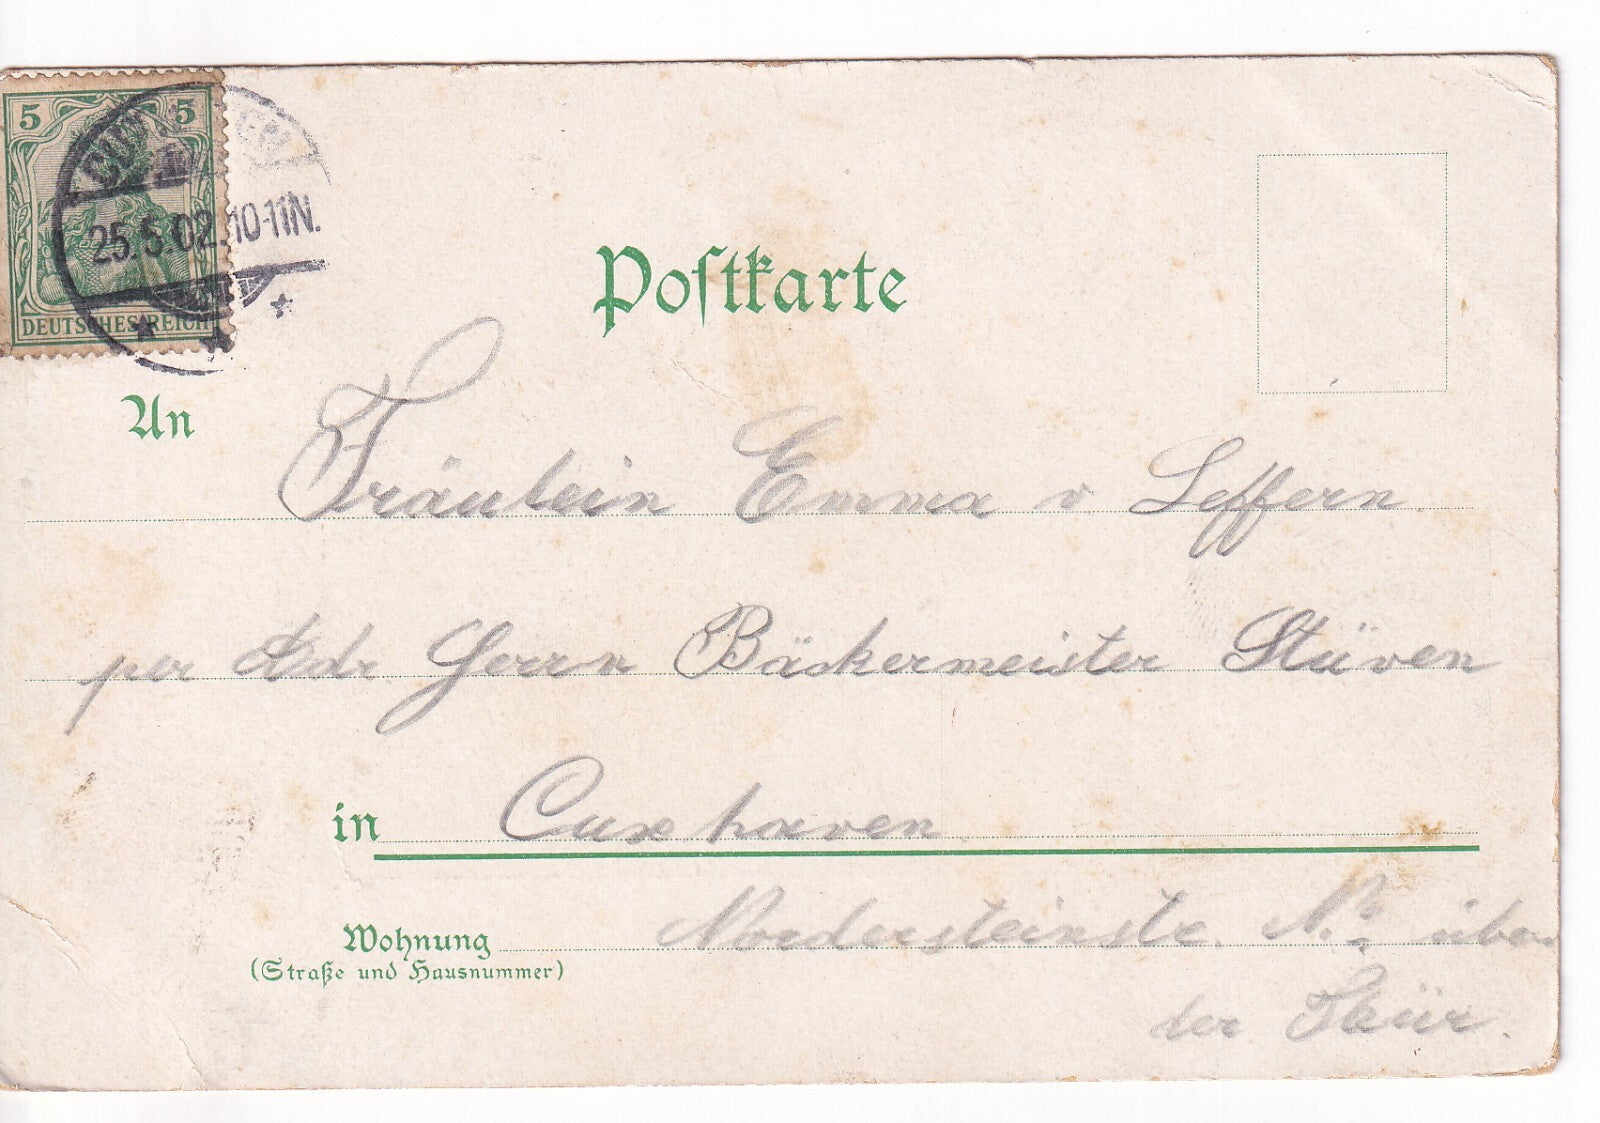 5 5
25.5.02.10-11N.
DEUTSCHES REICH
Postkarte
An
Fräulein Emma v Seffern
per Adr Herrn Bäckermeister Stüven
in Cuxhaven
Wohnung Nordersteinstr. Nr über
(Straße und Hausnummer)
der Thür.